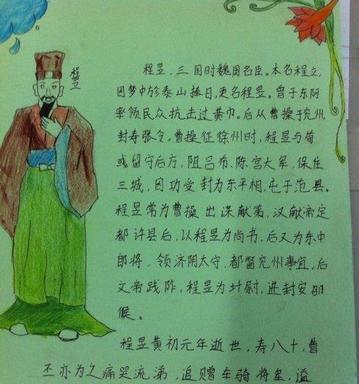 程昱
程昱,三国时魏国名臣。本名程立,
因梦中于泰山捧日,更名程昱。曾于东阿
率领民众抗击过黄巾。后从曹操于兖州
封寿张令。曹操征徐州时,程昱与荀
彧留守后方,阻吕布、陈宫大军,保住
三城,因功受封为东平相,屯于范县。
程昱常为曹操出谋献策,汉献帝定
都许县后,以程昱为尚书,后又为东中
郎将、领济阴太守、都督兖州事宜,后
文帝践阼,程昱为卫尉,进封安乡
候。
程昱黄初元年逝世,寿八十,曹
丕亦为之痛哭流涕,追赠车骑将军,谥